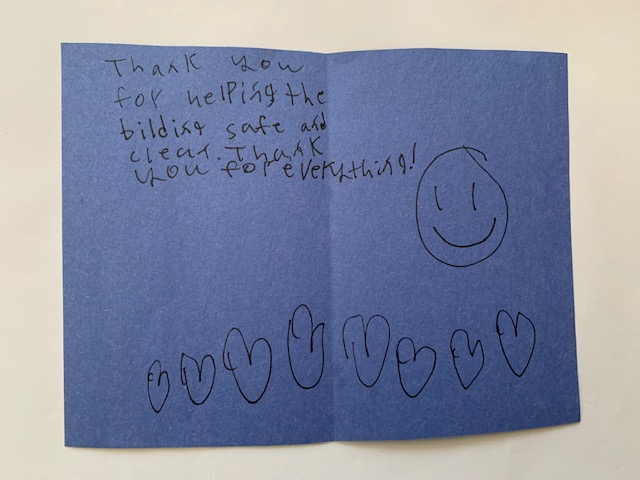 Thank you
for helping the
bilding safe and
clean. Thank
you for everything!